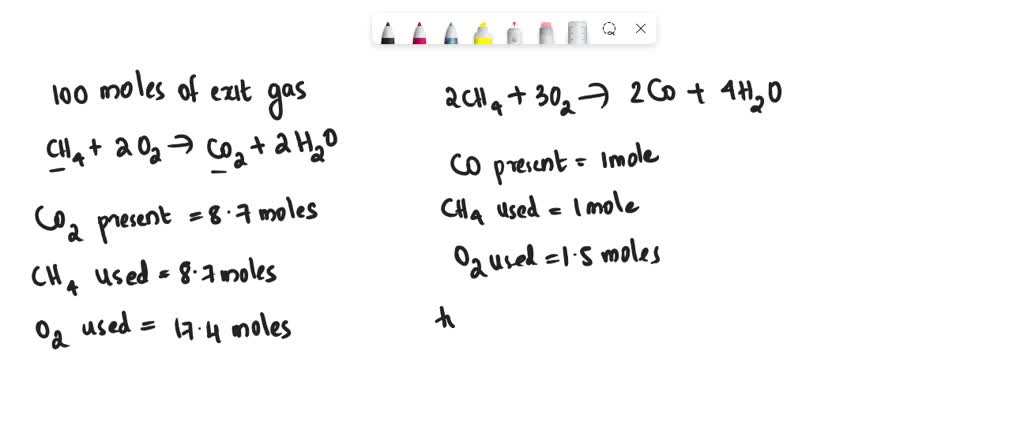 100 moles of exit gas
CH4 + 2O2 → CO2 + 2H2O
CO2 present = 8.7 moles
CH4 used = 8.7 moles
O2 used = 17.4 moles
2CH4 + 3O2 → 2CO + 4H2O
CO present = 1 mole
CH4 used = 1 mole
O2 used = 1.5 moles